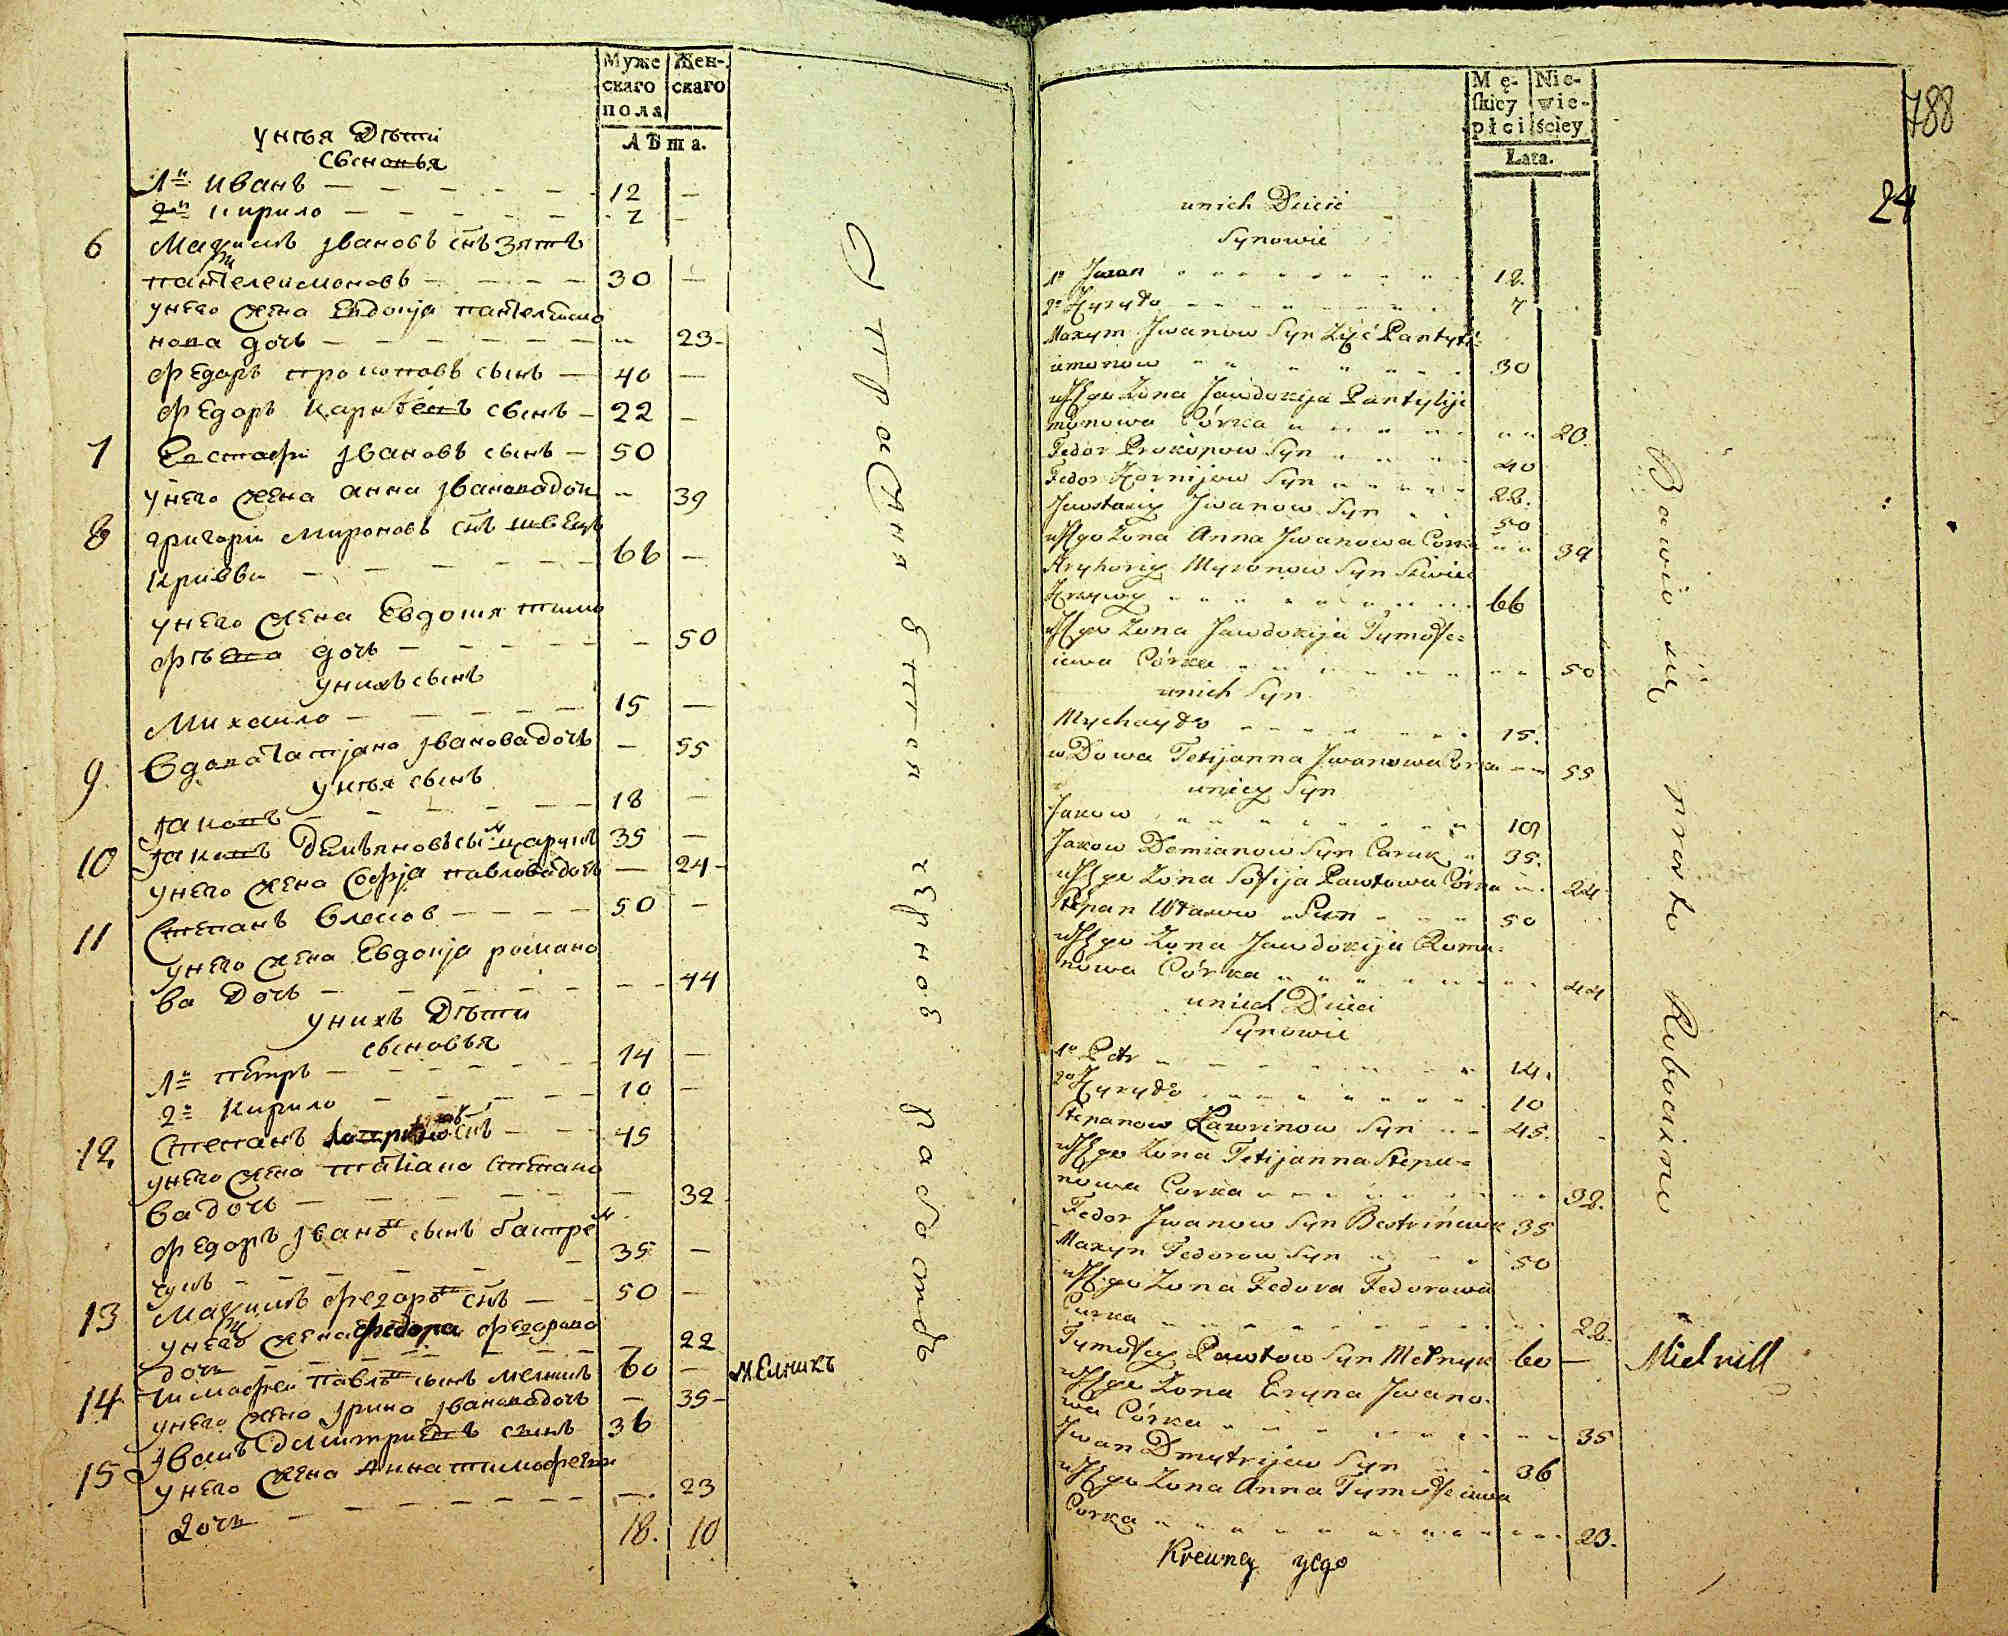 Муже
скаго
пола
Жен-
скаго
Лѣта.
унѣя Дѣти
Сыновья
1й Иванъ 12 —
2й Кирило 7 —
6 Максимъ Iвановъ снъ зять
пантелеимоновъ 30 —
унего жена Евдокiя пантелеимо
нова дочь 23
Федоръ прокоповъ сынъ 40 —
Федоръ Карнѣевъ сынъ 22 —
7 Евстафи Iвановъ сынъ 50
унего жена анна Iвановадочь 39
8 григорiи мироновъ снъ швецъ
Кривви 66 —
унего жена Евдокия тимо
фѣева дочь 50
унихъ сынъ
Михаило 15 —
9 вдова Татiяна Iвановадочь — 55
унѣя сынъ
Iаковъ 18 —
10 Iаковъ Демьяновъ сынъ царукъ 35 —
унего жена Софiя павловадочь — 24
11 Степанъ Власовъ 50 —
унего жена Евдокiя романо
ва Дочь 44
унихъ Дѣти
сыновья
1й петръ 14 —
2й Кирило 10 —
12 Степанъ снъ 45
унего жена татiана степано
ва дочь 32
Федоръ Iвановъ сынъ бастре
чукъ 35 —
13 Максимъ федоровъ снъ 50 —
унего жена федора федорова
дочь 22
14 тимофеи павловъ сынъ мелникъ 60 — мелникъ
унего жена Iрина Iвановадочь — 35
15 Iванъ Дмитриевъ сынъ 36
унего жена Анна тимофеева
дочь 23
18. 10
упражняется чернов работъ
788
24
Mę-
skiey
płci
Nie-
wie-
ściey
Lata.
unich Dzieci
Synowie
1o Jwan 12.
2o Kyryło 7
Maxym Jwanow Syn Zięć Pantyli-
imonow 30
u Jego Zona Jawdokija Pantyliji
monowa Córka 23.
Fedor Prokopow Syn 40
Fedor Kornijow Syn 22.
Jewstafiy Jwanow Syn 50
u Jego Zona Anna Jwanowa Corka 39
Hryhoriy Myronow Syn Szwiec
Krywy 66
u Jego Zona Jawdokija Tymofie-
iewa Córka 50
unich Syn
Mychayło 15.
wDowa Tetijanna Jwanowa Corka 55
uniey Syn
Jakow 18
Jakow Demianow Syn Caruk 35.
u Jego Zona Sofija Pawłowa Córka 24
Stepan Własow Syn 50
u Jego Zona Jawdokija Roma-
nowa Córka 44
unich Dzieci
Synowie
1o Petr 14.
2o Kyryło 10
Stepanow Ławrinow Syn 45.
u Jego Zona Tetijanna Stepa-
nowa Corka 32.
Fedor Jwanow Syn Bestrińczuk 35
Maxym Fedorow Syn 50
u Jego Zona Fedora Fedorowa
Curka 22.
Tymofiey Pawłow Syn Mełnyk 60 — Mielnik
u Jego Zona Eryna Jwano-
wa Córka 35
Jwan Dmytrijew Syn 36
u Jego Zona Anna Tymofieiewa
Corka 23.
Krewney yego
Bawia się prosto Robocizno